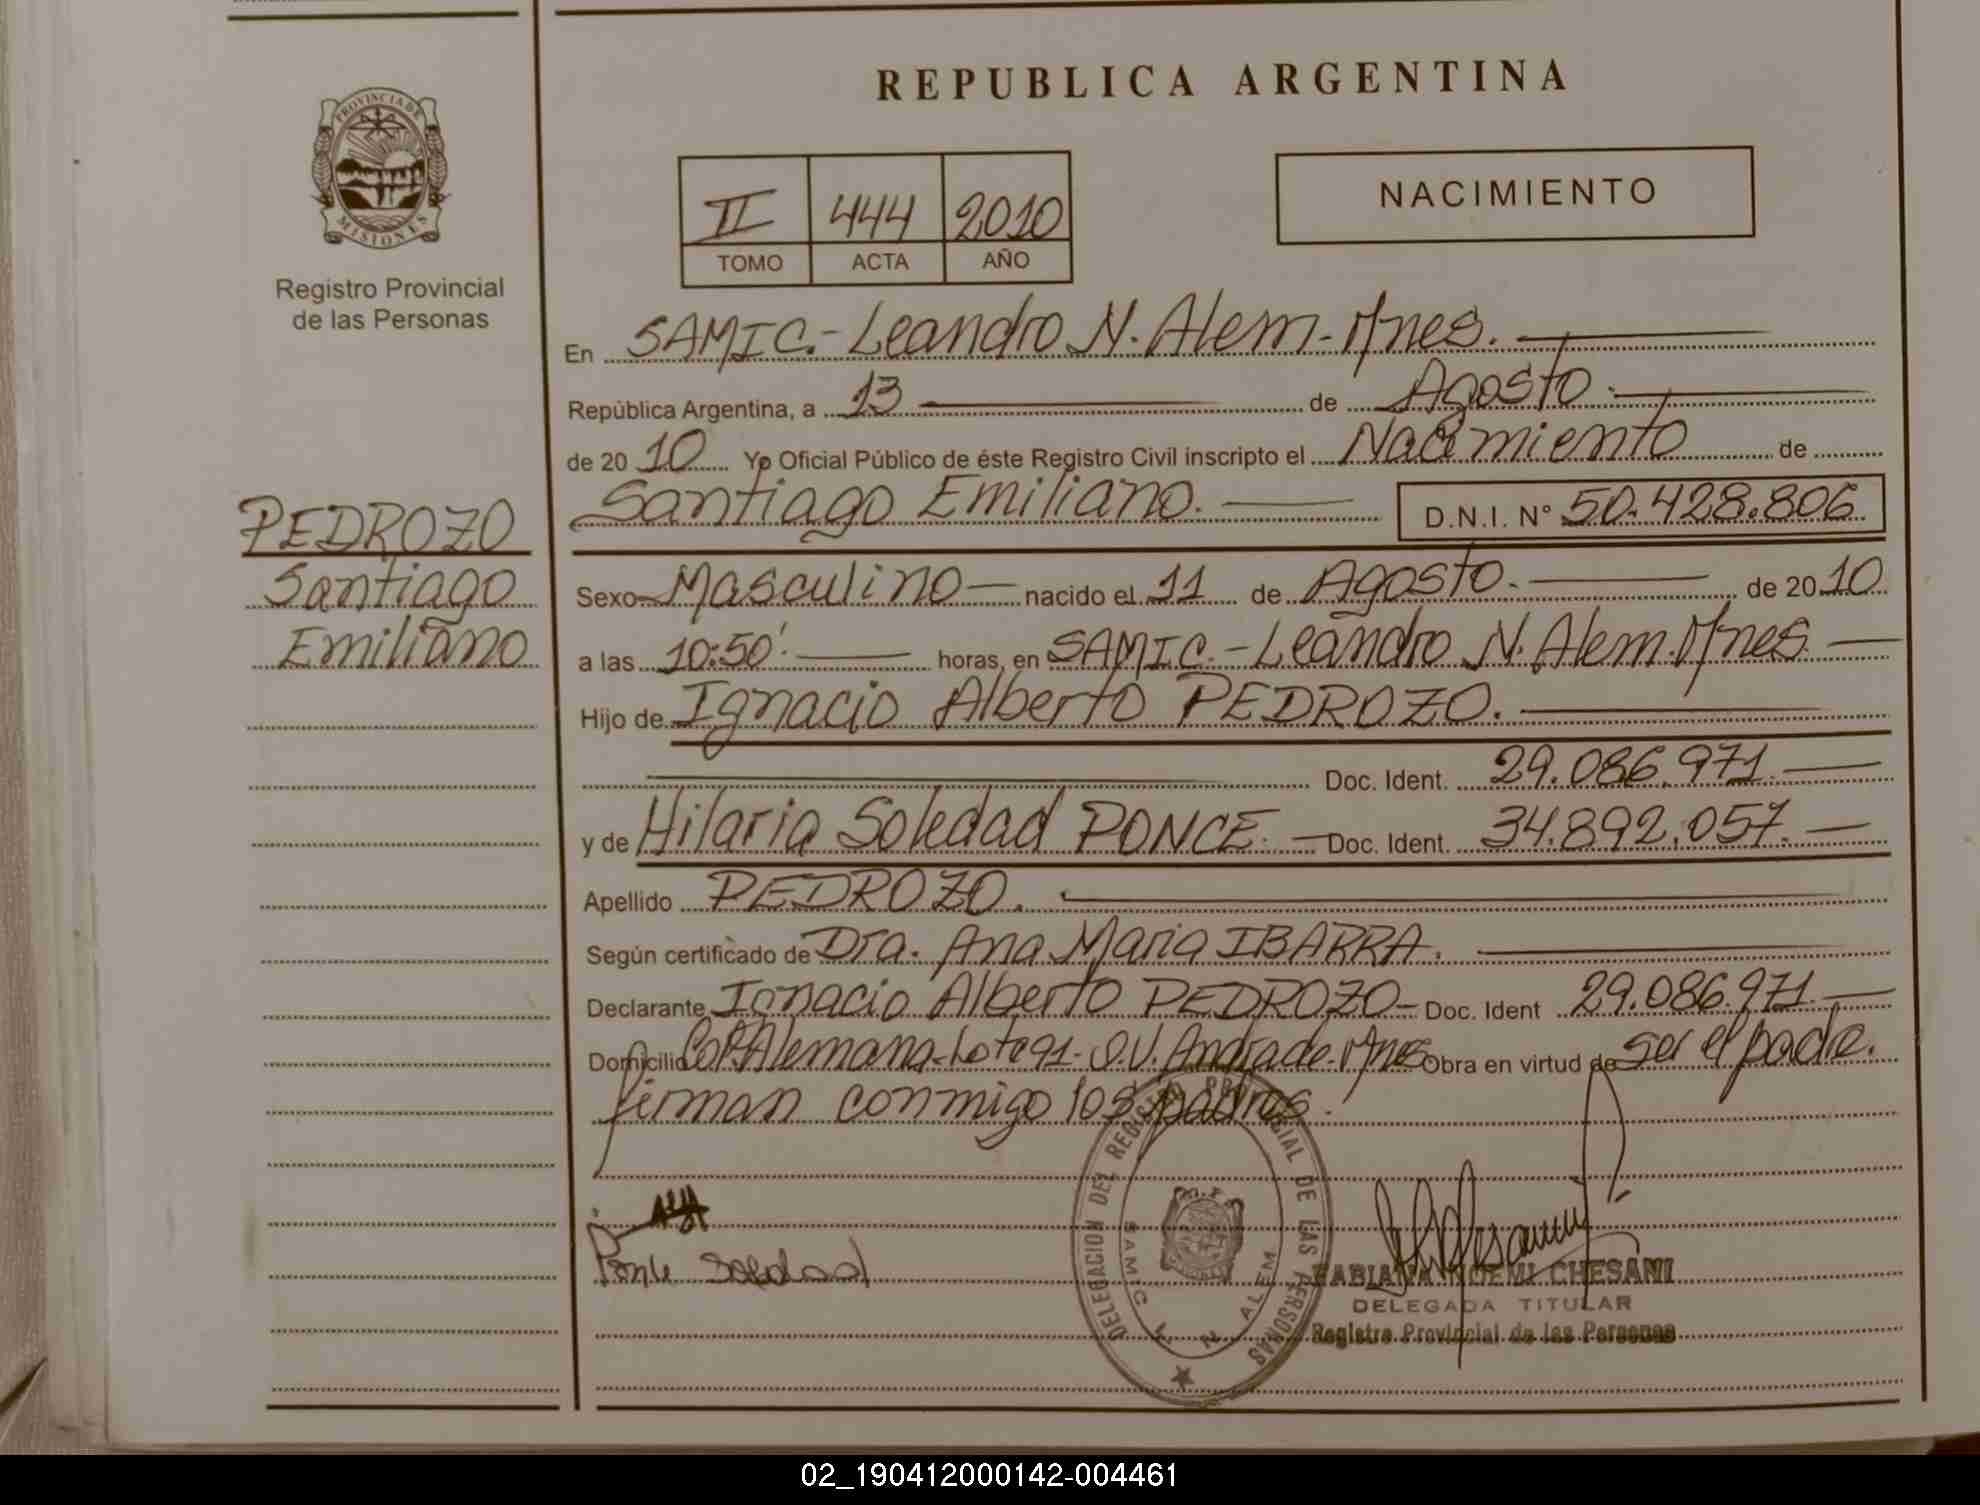 REPUBLICA ARGENTINA
PROVINCIA DE
MISIONES
Registro Provincial
de las Personas
II 444 2010
TOMO ACTA AÑO
NACIMIENTO
En SAMIC.-Leandro N. Alem-Mnes.
República Argentina, a 13 de Agosto.
de 20 10 Yo Oficial Público de éste Registro Civil inscripto el Nacimiento de
Santiago Emiliano. D.N.I. N° 50.428.806
PEDROZO
Santiago
Emiliano
Sexo Masculino nacido el 11 de Agosto. de 20 10
a las 10:50' horas, en SAMIC.-Leandro N. Alem.Mnes.
Hijo de Ignacio Alberto PEDROZO.
Doc. Ident. 29.086.971.
y de Hilaria Soledad PONCE. Doc. Ident. 34.892.057.
Apellido PEDROZO.
Según certificado de Dra. Ana Maria IBARRA.
Declarante Ignacio Alberto PEDROZO- Doc. Ident 29.086.971.
Domicilio Alemana-Lote 91-O.V. Andrade-Mnes Obra en virtud de ser el padre.
firman conmigo los padres.
Ponce Soledad
DELEGACION DEL REGISTRO PROVINCIAL DE LAS PERSONAS
SAMIC L N ALEM
FABIANA NOEMI CHESANI
DELEGADA TITULAR
Registro Provincial de las Personas
02_190412000142-004461